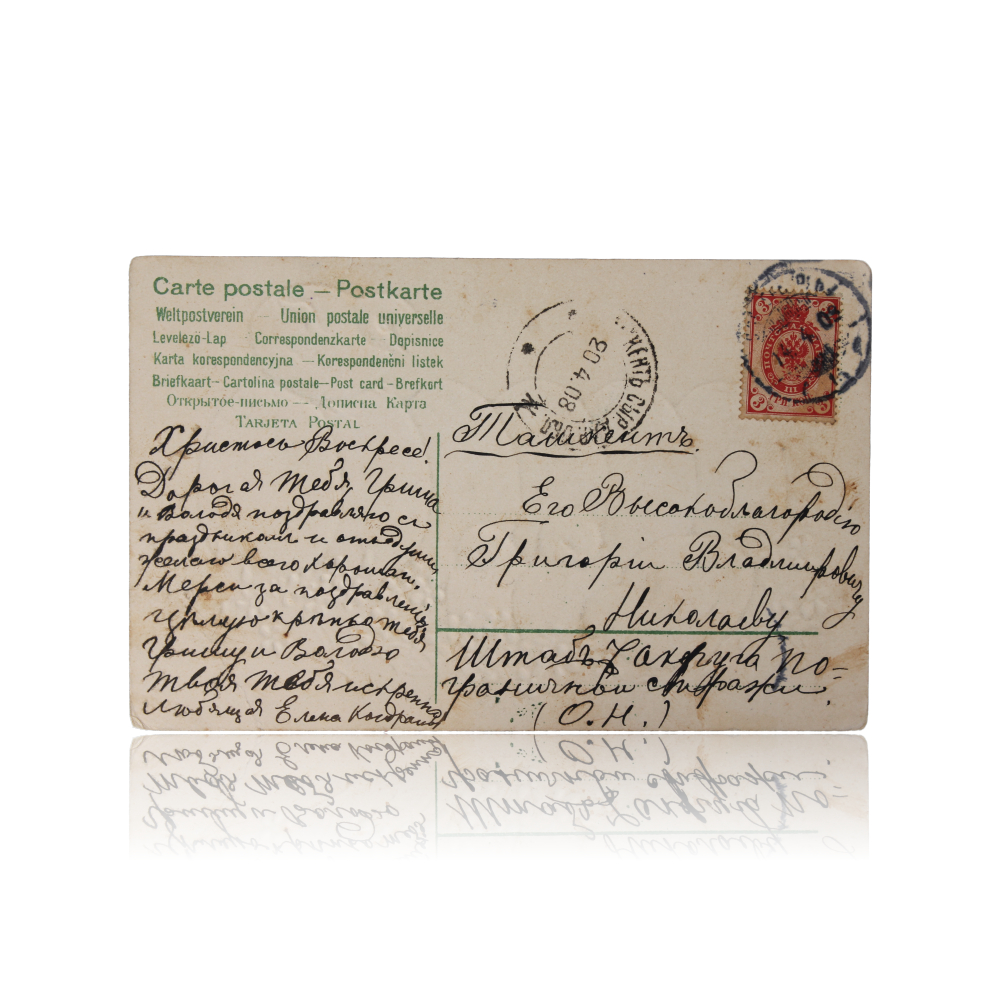 Carte postale — Postkarte
Weltpostverein — Union postale universelle
Levelező-Lap — Correspondenzkarte Dopisnice
Karta korespondencyjna — Korespondenční listek
Briefkaart — Cartolina postale — Post card — Brefkort
Открытое-письмо — Дописна Карта
Tarjeta Postal
Христосъ Воскресе!
Дорогая тебя, Гриша
и Володя поздравляю съ
праздникомъ и отъ души
желаю всего хорошаго,
Мерси за поздравленіе
цѣлую крѣпко тебя
Гришу и Володю
твоя тебя искренно
любящая Елена
20 4 08
КЕНТЪ СЫР
3 3
ТРИ КОП
3 3
Ташкентъ
Его Высокоблагородію
Григорію Владимировичу
Николаеву
Штабъ 7 округа по-
граничной стражи
(О.Н.)